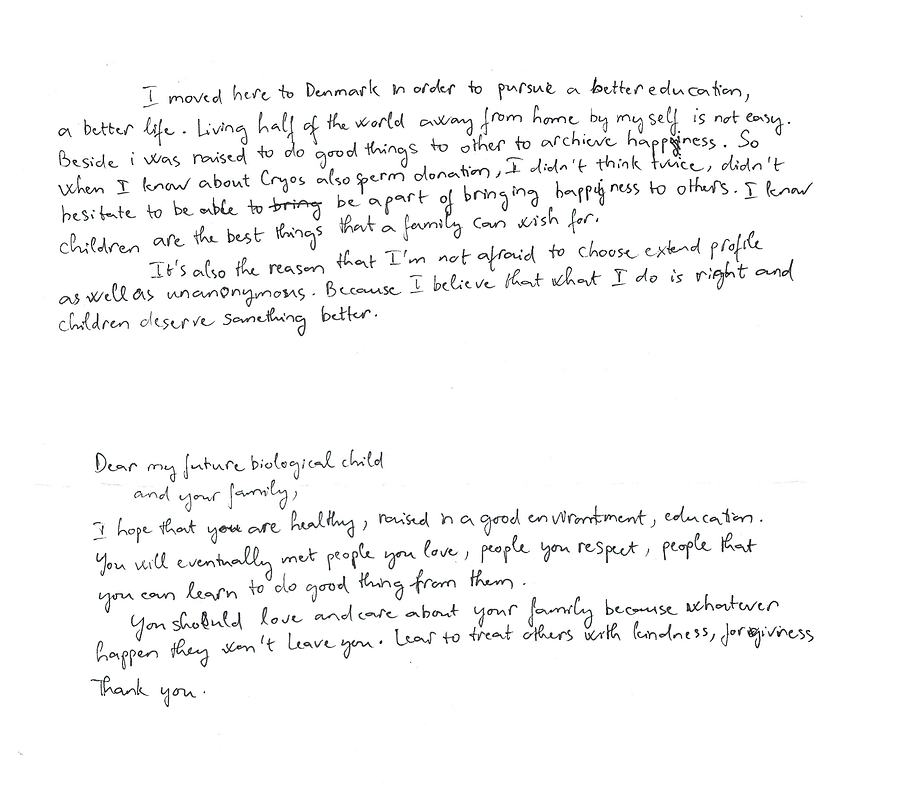 I moved here to Denmark in order to pursue a better education,
a better life. Living half of the world away from home by my self is not easy.
Beside i was raised to do good things to other to archieve happiness. So
when I know about Cryos also sperm donation, I didn't think twice, didn't
hesitate to be able to bring be a part of bringing happiness to others. I know
children are the best things that a family can wish for.
It's also the reason that I'm not afraid to choose extend profile
as well as unanonymous. Because I believe that what I do is right and
children deserve something better.
Dear my future biological child
and your family,
I hope that you are healthy, raised in a good environtment, education.
You will eventually met people you love, people you respect, people that
you can learn to do good thing from them.
You should love and care about your family because whatever
happen they won't leave you. Lear to treat others with kindness, forgiviness
Thank you.